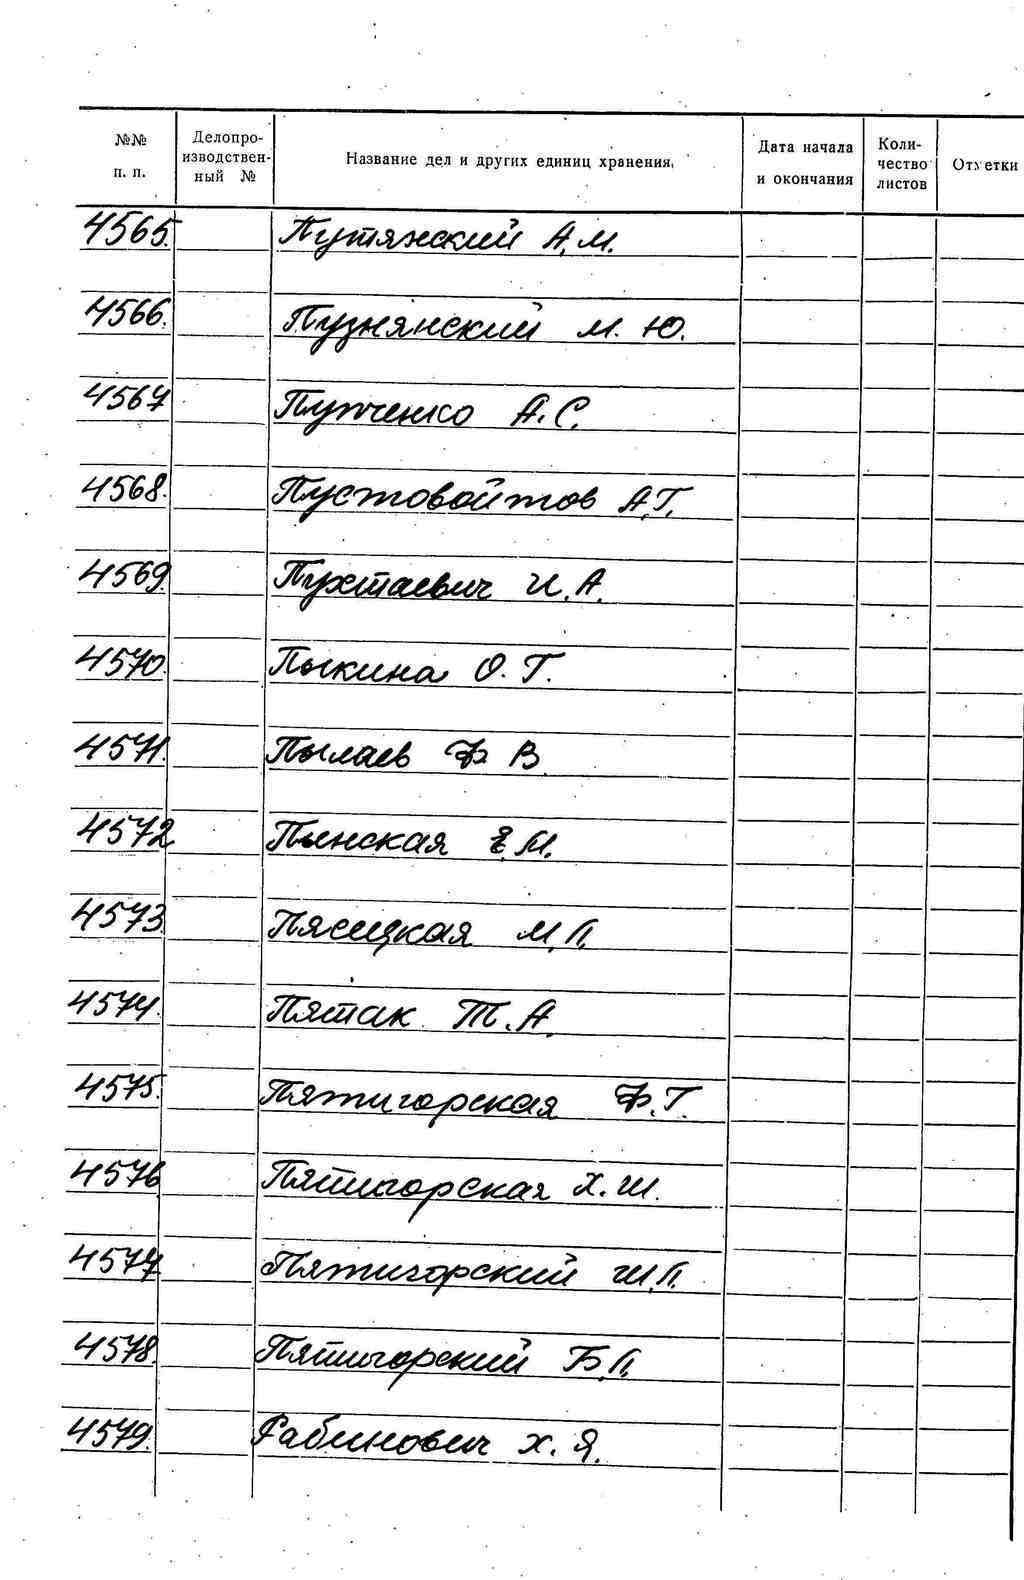 №№ п. п. Делопроизводственный № Название дел и других единиц хранения, Дата начала и окончания Количество листов Отметки
4565. Путянский А.М.
4566. Пузнянский М. Ю.
4567 Пупченко А.С.
4568. Пустовойтов А.Г.
4569. Пухтаевич И.А.
4570. Пыкина О.Г.
4571. Пылаев Ф В.
4572 Пынская Е.М.
4573. Пясецкая М.П.
4574. Пятак Т.А.
4575. Пятигорская Ф.Г.
4576. Пятигорская Х.Ш.
4577. Пятигорский Ш.П.
4578. Пятигорский Б.П.
4579. Рабинович Х.Я.